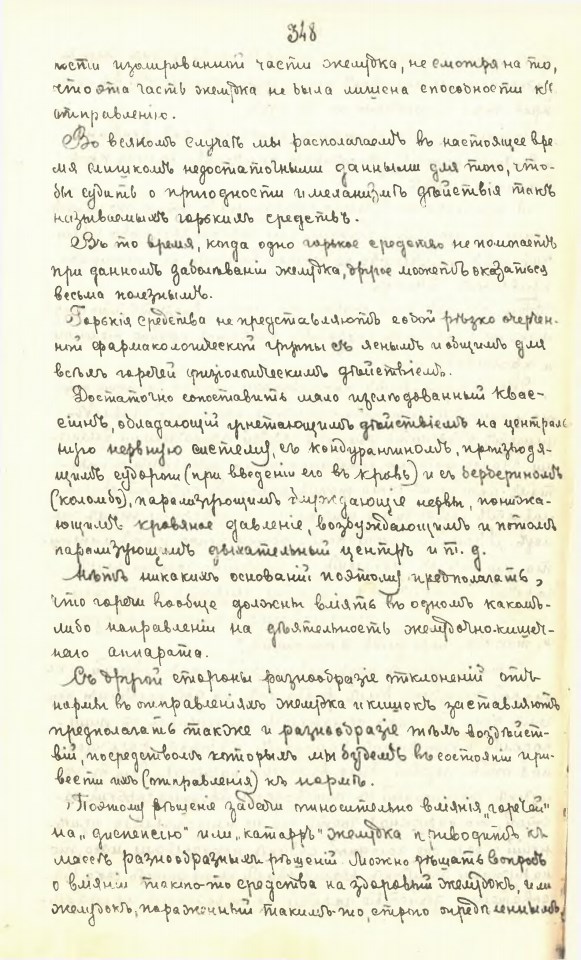 348
ности изолированной части желудка, не смотря на то,
что эта часть желудка не была лишена способности къ
отправленію.
Во всякомъ случаѣ мы располагаемъ въ настоящее вре
мя слишкомъ недостаточными данными для того, что-
бы судить о пригодности и механизмѣ дѣйствія такъ
называемыхъ горькихъ средствъ.
Въ то время, когда одно горькое средство не помогаетъ
при данномъ заболѣваніи желудка, другое можетъ оказаться
весьма полезнымъ.
Горькія средства не представляютъ собой рѣзко очерчен-
ной фармакологической группы съ яснымъ и общимъ для
всѣхъ горечей физіологическимъ дѣйствіемъ.
Достаточно сопоставить мало изслѣдованный Квас-
сіинъ, обладающій угнетающимъ дѣйствіемъ на централь
ную нервную систему, съ кондурангиномъ, производя-
щимъ судороги (при введеніи его въ кровь) и съ берберіномъ
(коломбо), парализующимъ блуждающіе нервы, понижа-
ющимъ кровяное давленіе, возбуждающимъ и потомъ
парализующимъ дыхательный центръ и т. д.
Нѣтъ никакихъ основаній поэтому предполагать,
что горечи вообще должны вліять въ одномъ какомъ-
либо направленіи на дѣятельность желудочно-кишеч-
наго аппарата.
Съ другой стороны разнообразіе отклоненій отъ
нормы въ отправленіяхъ желудка и кишокъ заставляютъ
предполагать также и разнообразіе тѣхъ воздѣйст-
вій, посредствомъ которыхъ мы будемъ въ состояніи при-
вести ихъ (отправленія) къ нормѣ.
Поэтому рѣшеніе задачи относительно вліянія „горечей"
на „диспепсію" или „катарръ" желудка приводитъ къ
массѣ разнообразныхъ рѣшеній. Можно рѣшать вопросъ
о вліяніи такого-то средства на здоровый желудокъ, или
желудокъ, пораженный такимъ-то, строго опредѣленнымъ,